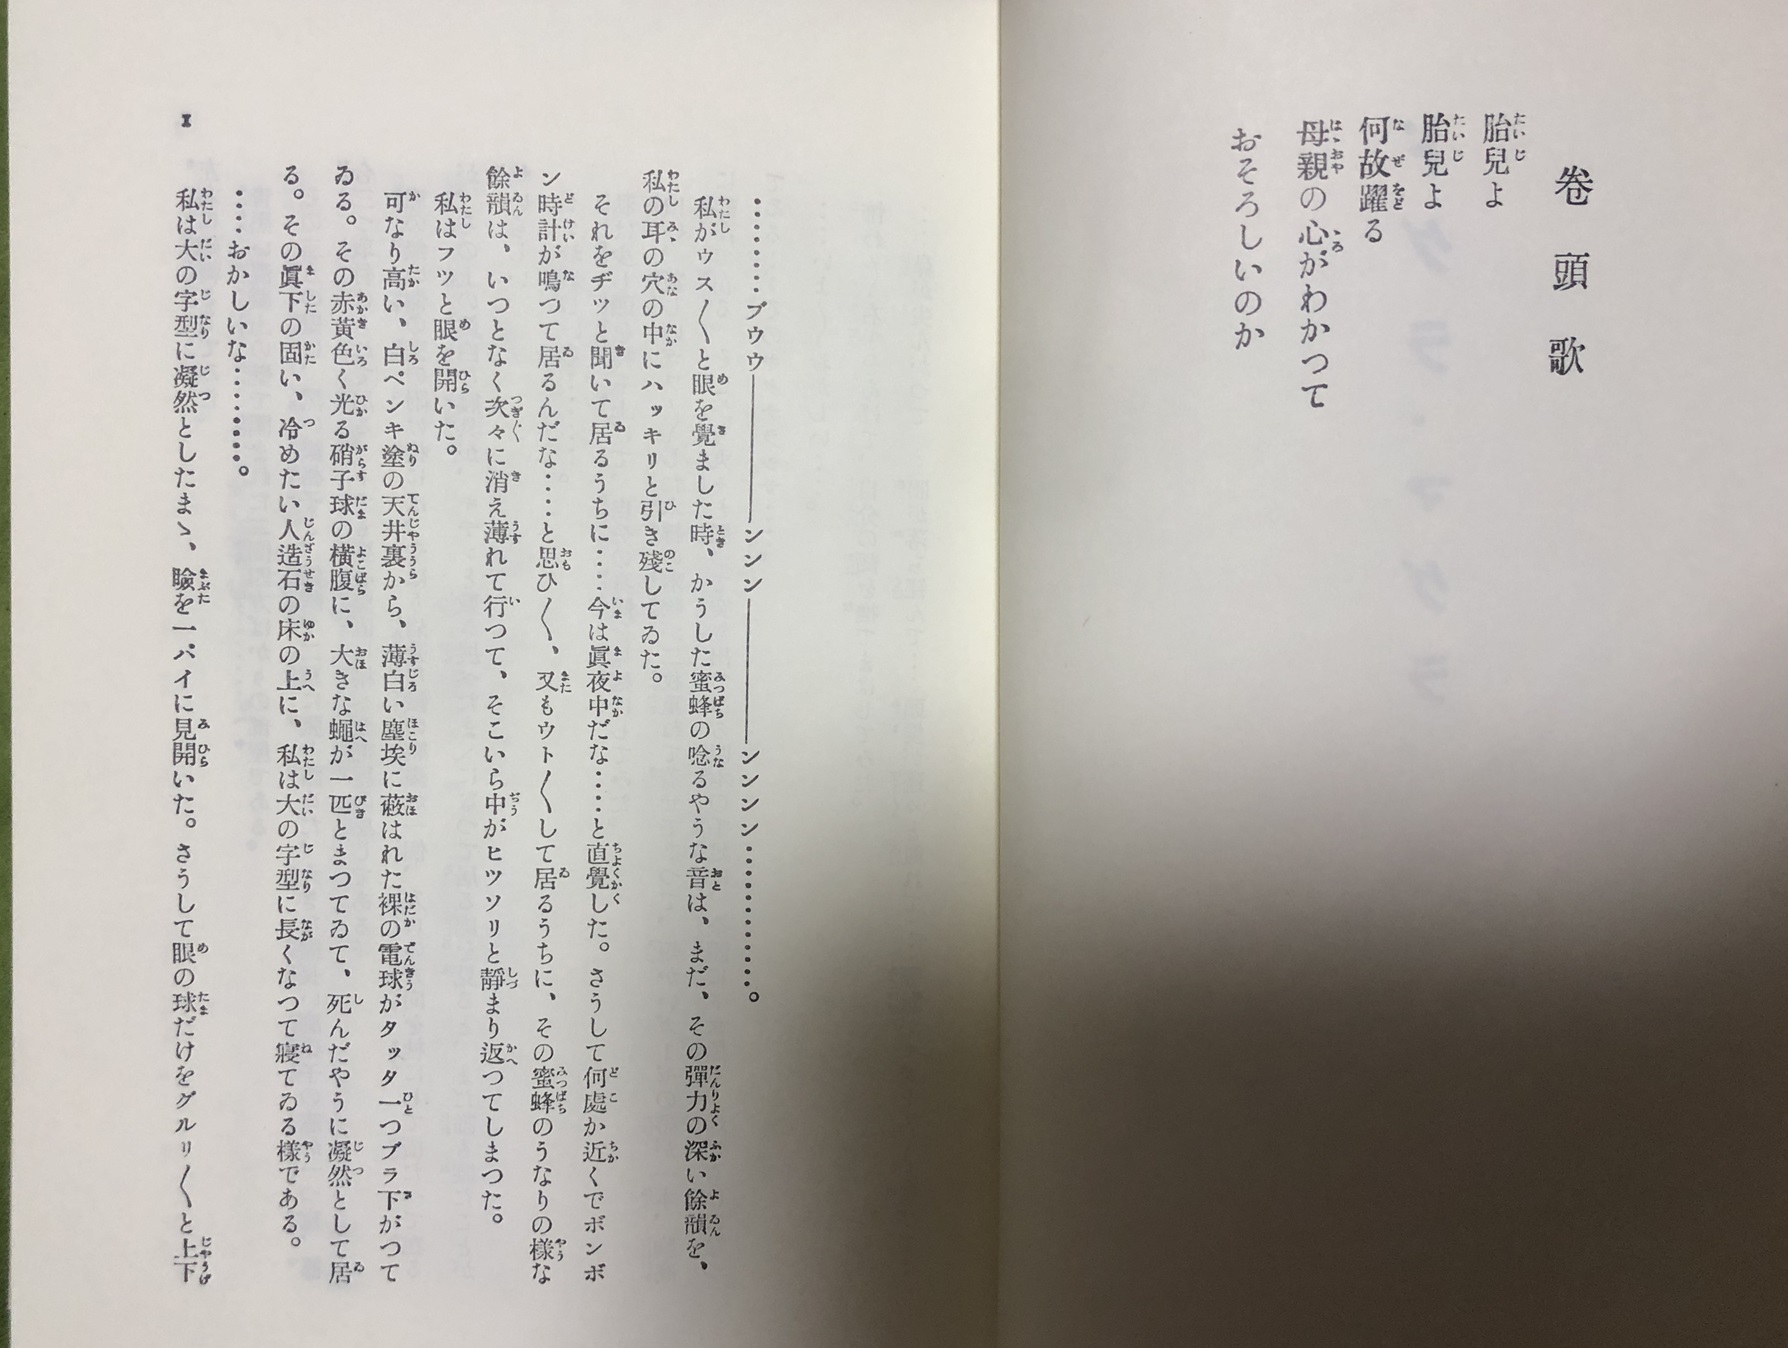 卷頭歌
胎兒よ
胎兒よ
何故躍る
母親の心がわかつて
おそろしいのか
………ブウウ――――――ンンン――――――ンンンン…………。
私がウス〳〵と眼を覺ました時、かうした蜜蜂の唸るやうな音は、まだ、その彈力の深い餘韻を、
私の耳の穴の中にハッキリと引き殘してゐた。
それをヂッと聞いて居るうちに‥‥今は眞夜中だな‥‥と直覺した。さうして何處か近くでボンボ
ン時計が鳴つて居るんだな‥‥と思ひ〳〵、又もウト〳〵して居るうちに、その蜜蜂のうなりの樣な
餘韻は、いつとなく次々に消え薄れて行つて、そこいら中がヒツソリと靜まり返つてしまつた。
私はフツと眼を開いた。
可なり高い、白ペンキ塗の天井裏から、薄白い塵埃に蔽はれた裸の電球がタッタ一つブラ下がつて
ゐる。その赤黃色く光る硝子球の橫腹に、大きな蠅が一匹とまつてゐて、死んだやうに凝然として居
る。その眞下の固い、冷めたい人造石の床の上に、私は大の字型に長くなつて寢てゐる樣である。
‥‥おかしいな…………。
私は大の字型に凝然としたまゝ、瞼を一パイに見開いた。さうして眼の球だけをグルリ〳〵と上下
1